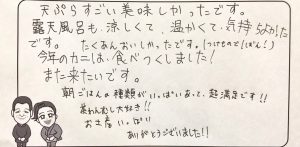 天ぷらすごい美味しかったです。
露天風呂も、涼しくて、温かくて、気持ちよかった
です。たくあんおいしかったです。(つけもので(ぱん!)
今年のカニは、食べつくしました!
また来たいです。
朝ごはんの種類がいっぱいあって、超満足です!!
茶わんむし大好き!!
お土産いっぱい
ありがとうございました!!